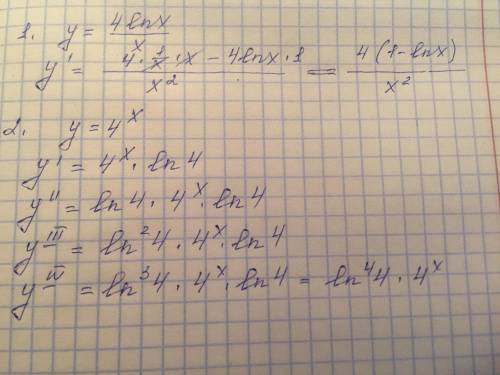 1. y = 4lnx / x
y' = (4 · 1/x · x − 4lnx · 1) / x² = 4(1−lnx) / x²
2. y = 4^x
y' = 4^x · ln4
y'' = ln4 · 4^x · ln4
y^III = ln²4 · 4^x · ln4
y^IV = ln³4 · 4^x · ln4 = ln⁴4 · 4^x